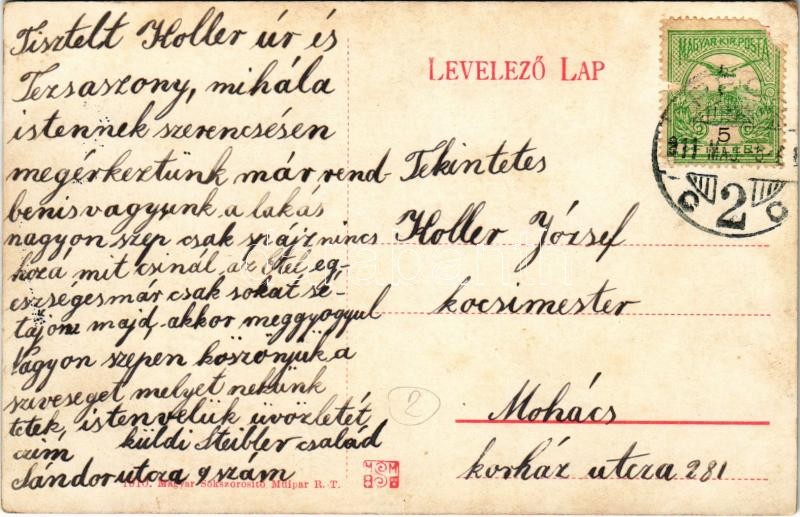 Tisztelt Holler úr és
Tezsaszony, mihála
istennek szerencsésen
megérkeztünk már rend-
benisvagyunk a lakás
nagyon szep csak spájz nincs
hozá mit csinál az Etel eg-
eszségesmár csak sokat sé-
tajon majd, akkor meggyogyul
Nagyon szepen köszönjük a
sziveseget melyet nekünk
tetek, istenvelük üvözletét
küldi Steibler család
czim
Sándor utcza 9 szám
LEVELEZŐ LAP
Tekintetes
Holler József
kocsimester
Mohács
korház utcza 281
MAGYAR KIR. POSTA
5
911 MAJ.
2
2
1910. Magyar Sokszorosító Műipar R. T.